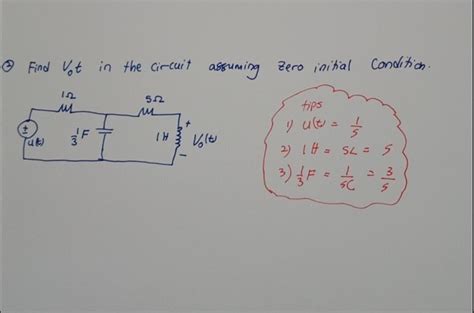 ② Find Vot in the circuit assuming zero initial condition.
1Ω
5Ω
+
±
u(t)
1/3 F
1 H
Vo(t)
−
tips
1) u(t) = 1/s
2) 1 H = SL = S
3) 1/3 F = 1/SC = 3/s